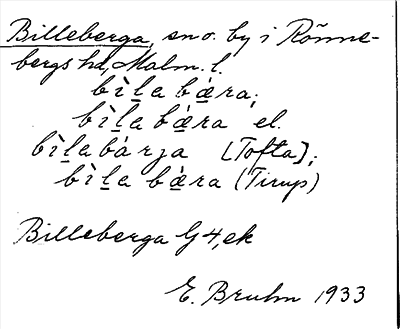 Billeberga, sn o. by i Rönne-
bergs hd, Malm. l.
bìḻa bæ̀ra;
bìḻa bæ̀ra el.
bìḻabàrja [Tofta];
bìḻa bæ̀ra (Tirup)
Billeberga G4, ek
E. Bruhn 1933